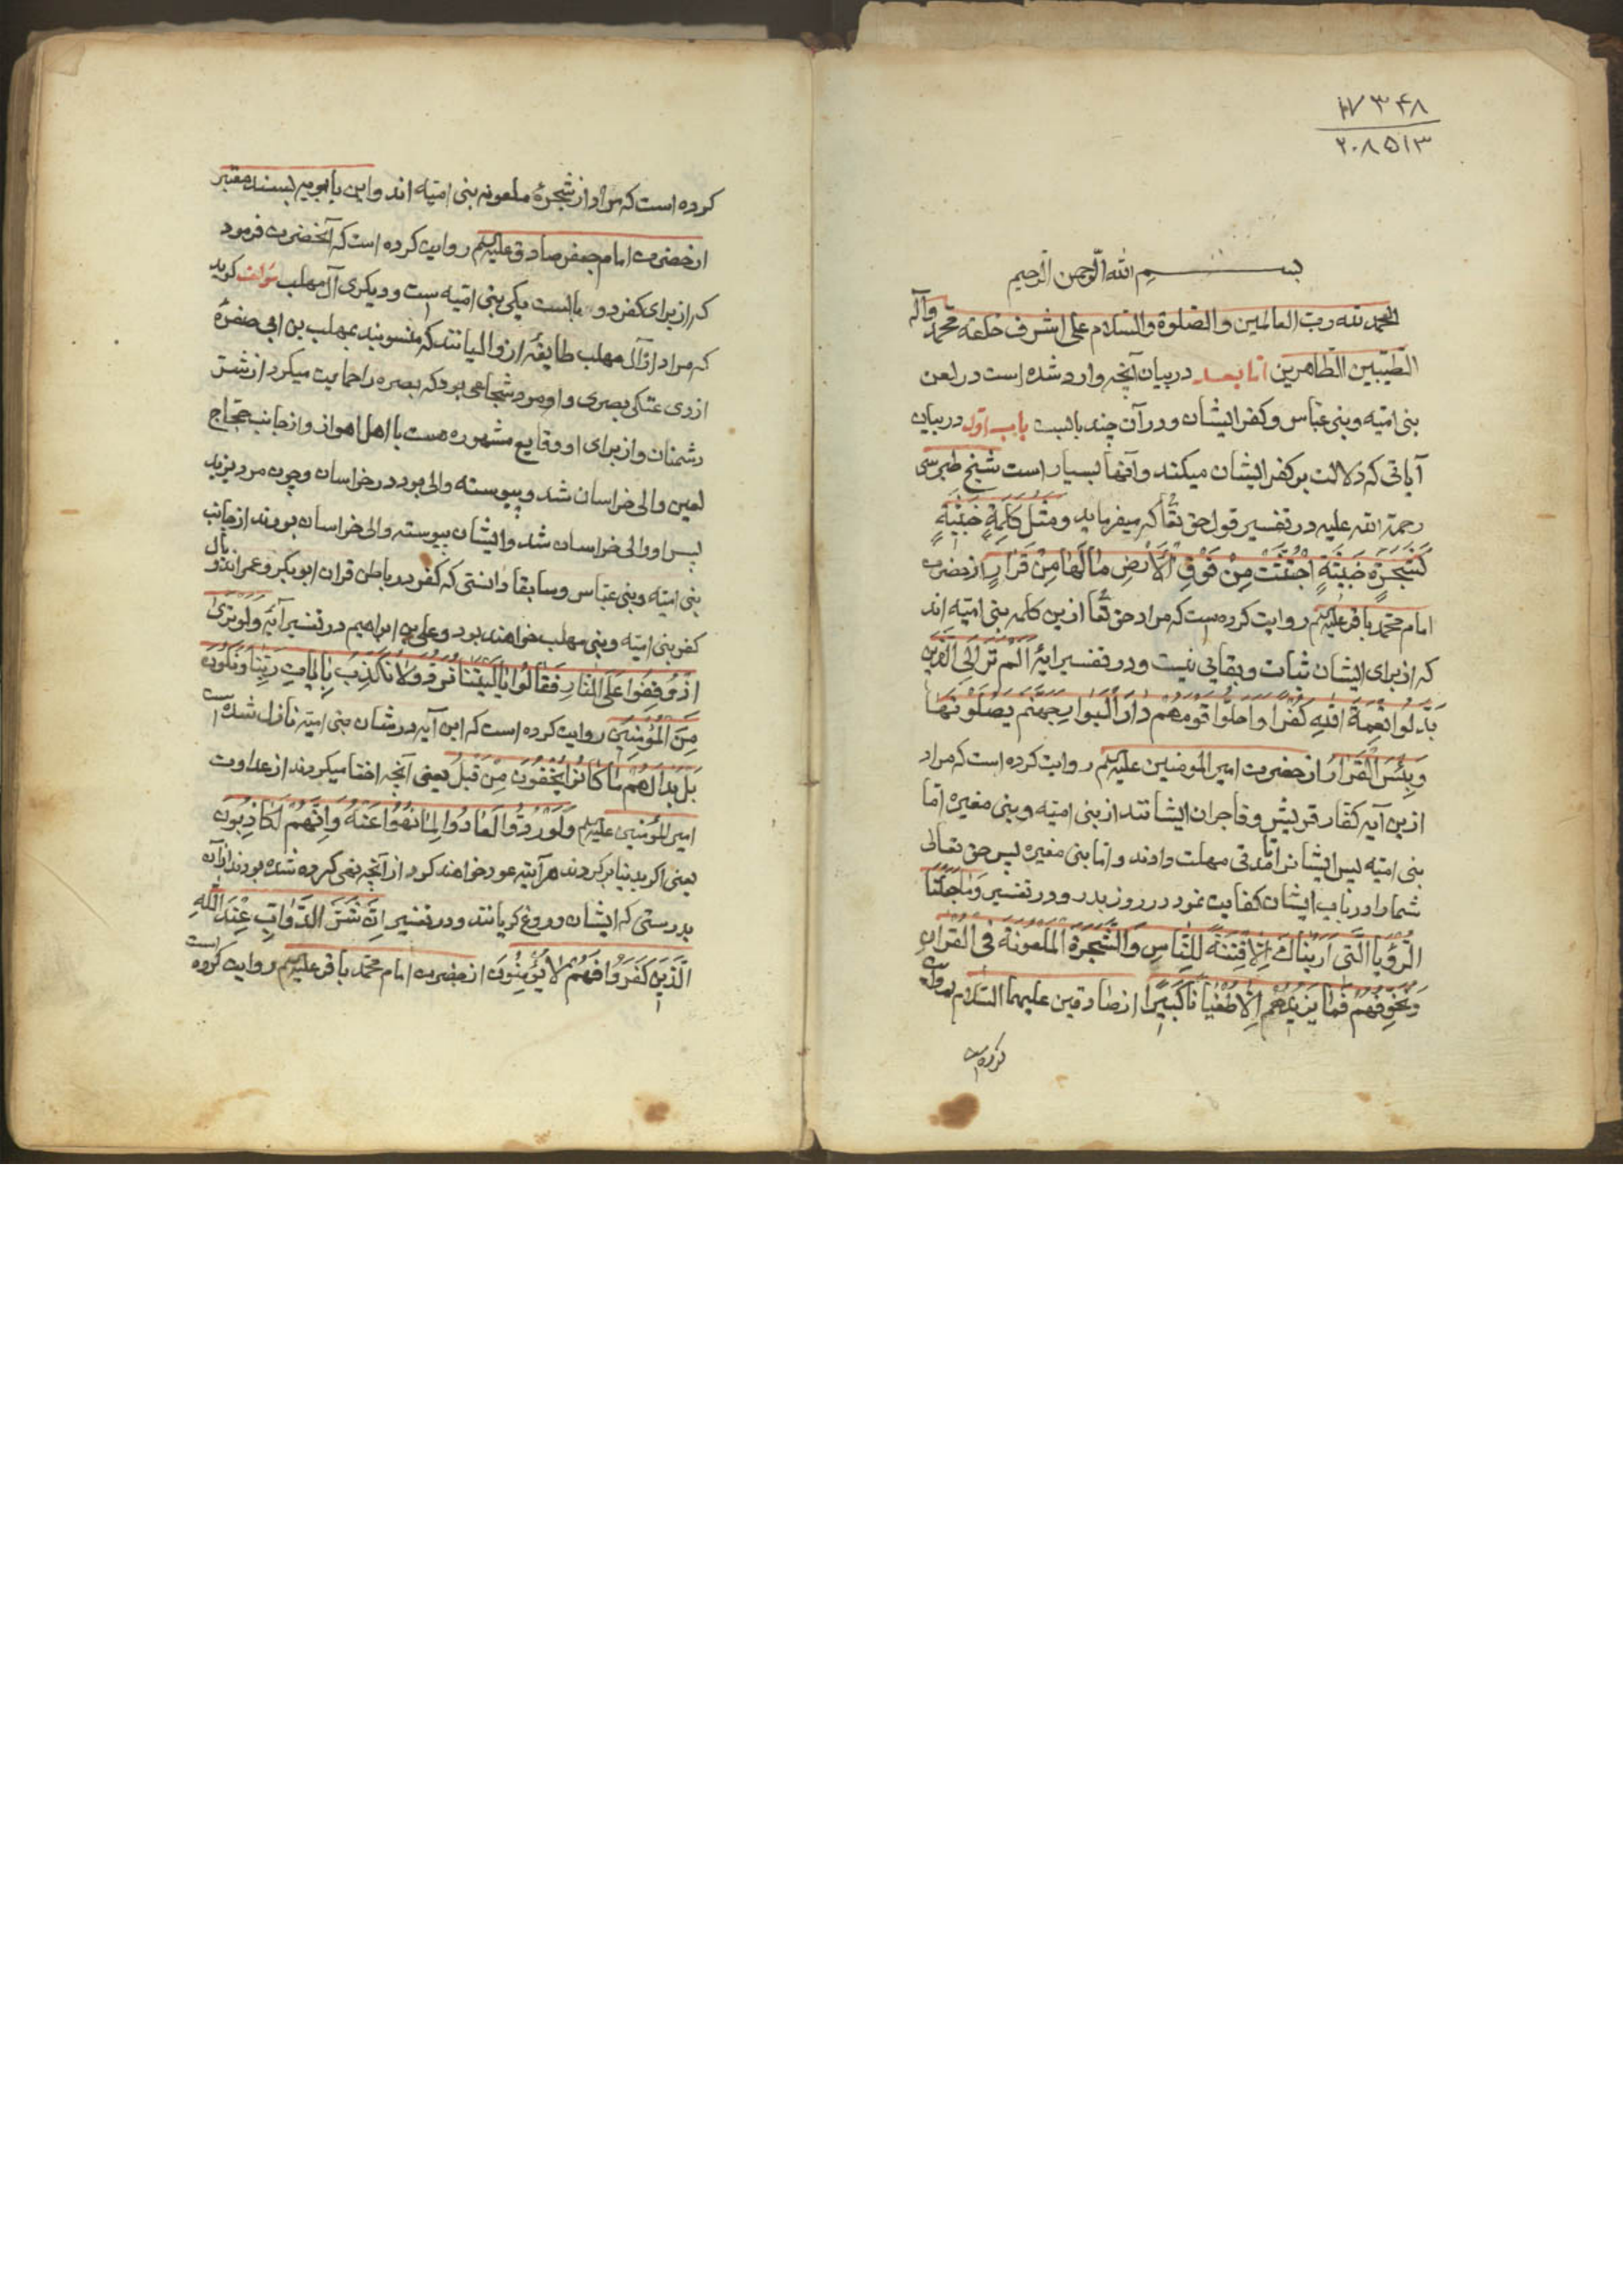 ۱۷۳۴۸
۲۰۸۵۱۳
بسم الله الرحمن الرحیم
الحمد لله رب العالمین و الصلوة والسلام علی اشرف خلقه محمد وآله
الطیبین الطاهرین اما بعد در بیان آنچه وارد شده است در لعن
بنی امیه و بنی عباس و کفر ایشان و در آن چند بابست باب اول در بیان
آیاتی که دلالت بر کفر ایشان میکند و آنها بسیار است شیخ طبرسی
رحمة الله علیه در تفسیر قول حق تعا که میفرماید و مثل کلمة خبیثة
کشجرة خبیثة اجتثت من فوق الارض ما لها من قرار از حضرت
امام محمد باقر علیه‌السلم روایت کرده است که مراد حق تعا ازین کلمه بنی امیه اند
که از برای ایشان ثبات و بقایی نیست و در تفسیر ایهٔ الم تر الی الذین
بدلوا نعمة الله کفرا و احلوا قومهم دار البوار جهنم یصلونها
وبئس القرار از حضرت امیر المومنین علیه‌السلم روایت کرده است که مراد
ازین آیه کفار قریش و فاجران ایشانند از بنی امیه و بنی مغیره اما
بنی امیه پس ایشانرا مدتی مهلت دادند و اما بنی مغیره پس حق تعالی
شما را در باب ایشان کفایت نمود در روز بدر و در تفسیر و ما جعلنا
الرؤیا التی اریناک الا فتنة للناس والشجرة الملعونة فی القران
و نخوفهم فما یزیدهم الا طغیانا کبیرا از صادقین علیهما السلام روایت
کرده است
کرده است که مراد از شجرهٔ ملعونه بنی امیه اند و ابن بابویه بسند معتبر
از حضرت امام جعفر صادق علیه‌السلم روایت کرده است که آنحضرت فرمود
که از برای کفر دو بالست یکی بنی امیه است و دیگری آل مهلب مولف کوید
که مراد از آل مهلب طایفهٔ از والیانند که منسوبند بمهلب بن ابی صفرهٔ
ازدی عتکی بصری و او مرد شجاعی بود که بصره را حمایت میکرد از شر
دشمنان و از برای او وقایع مشهوره هست با اهل اهواز و از جانب حجاج
لعین والی خراسان شد و پیوسته والی بود در خراسان و چون مرد یزید
پسر او والی خراسان شد و ایشان پیوسته والی خراسان بودند از جانب
بنی امیه و بنی عباس و سابقا دانستی که کفر در باطن قران ابو بکر و عمر اند و بال
کفر بنی امیه و بنی مهلب خواهند بود و علی بن ابراهیم در تفسیر آیهٔ ولو تری
اذ وقفوا علی النار فقالوا یا لیتنا نرد ولا نکذب بایات ربنا و نکون
من المؤمنین روایت کرده است که این آیه در شان بنی امیه نازل شده است
بل بدا لهم ما کانوا یخفون من قبل یعنی آنچه اخفا میکردند از عداوت
امیر المؤمنین علیه‌السلم ولو ردوا لعادوا لما نهوا عنه وانهم لکاذبون
یعنی اکر بدنیا بر کردند هر آینه عود خواهند کرد از آنچه نهی کرده شده بودند از آن
بدرستی که ایشان دروغ کویانند و در تفسیر ان شر الدواب عند الله
الذین کفروا فهم لا یؤمنون از حضرت امام محمد باقر علیه‌السلم روایت کرده است